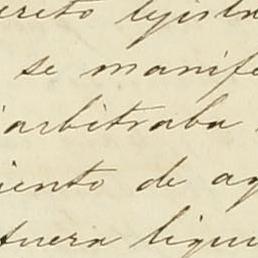 creto legisla
se manife
arbitraba
iento de ag
fuera liqui